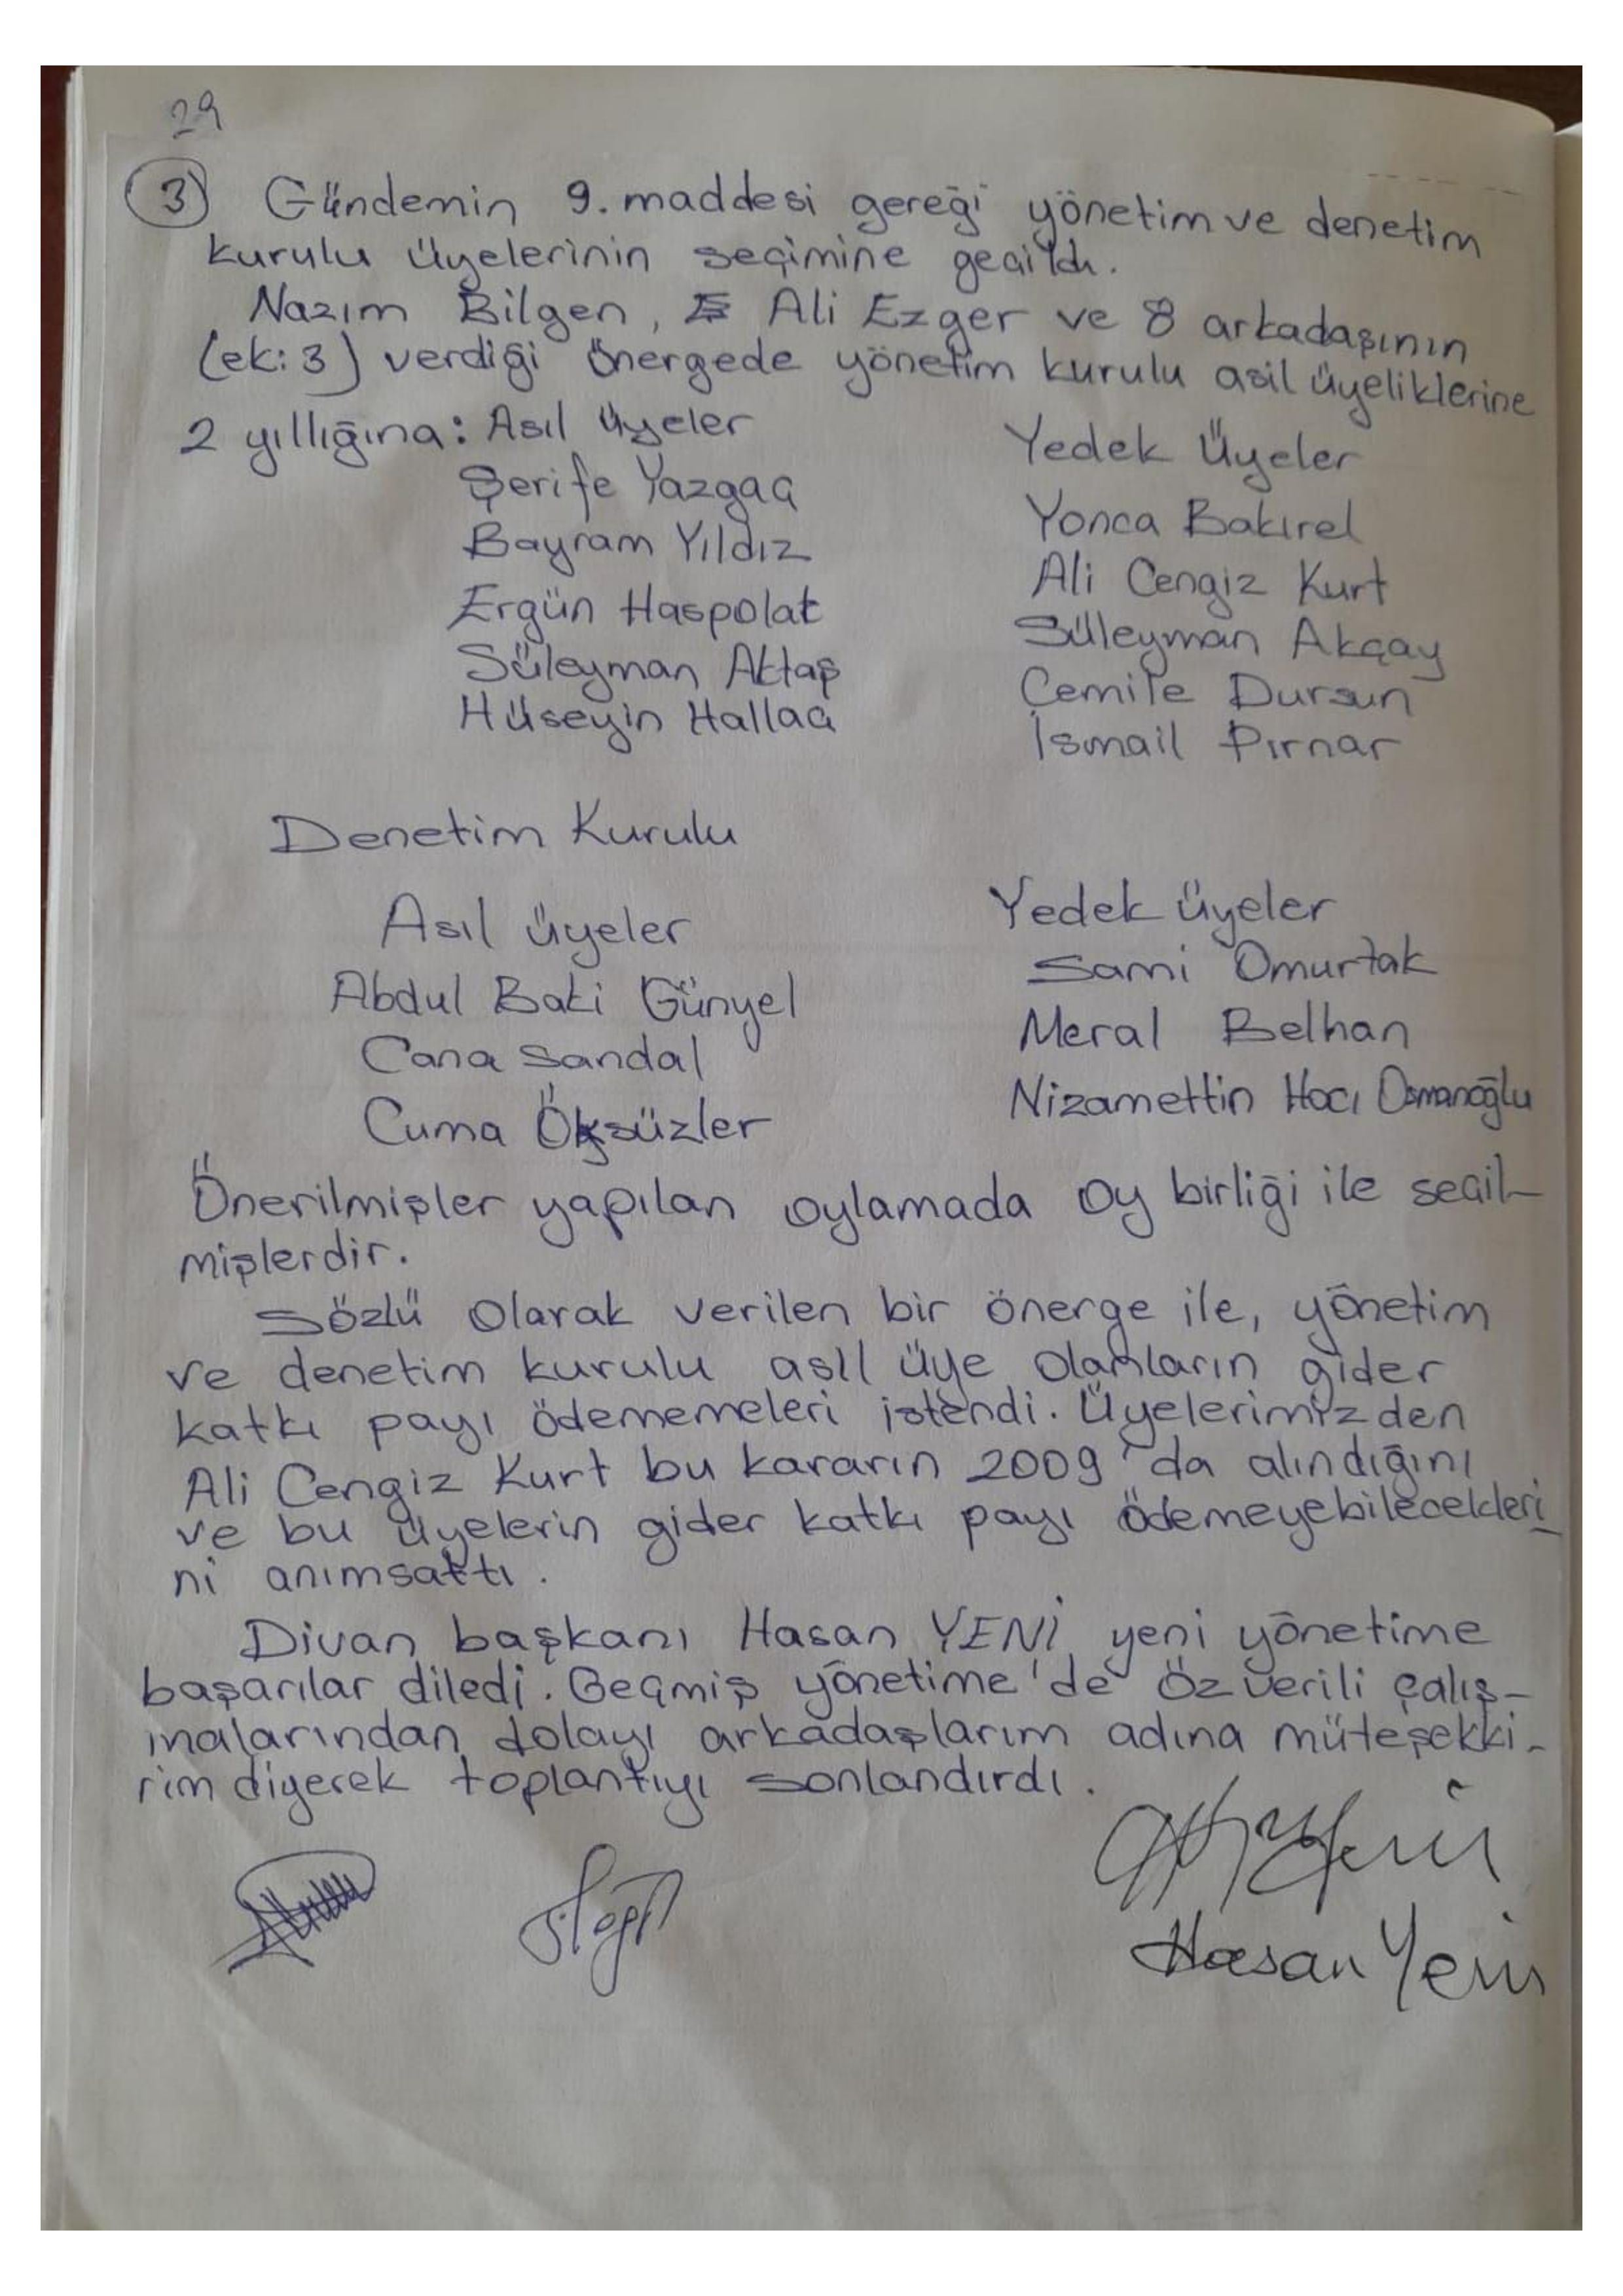 29
3 Gündemin 9. maddesi gereği yönetim ve denetim
kurulu üyelerinin seçimine geçildi.
Nazım Bilgen, Ali Ezger ve 8 arkadaşının
(ek: 3) verdiği önergede yönetim kurulu asil üyeliklerine
2 yıllığına: Asıl üyeler Yedek Üyeler
Şerife Yazgaç Yonca Bakırel
Bayram Yıldız Ali Cengiz Kurt
Ergün Haspolat Süleyman Akçay
Süleyman Aktaş Cemile Dursun
Hüseyin Hallaç İsmail Pırnar
Denetim Kurulu
Asıl üyeler Yedek üyeler
Abdul Baki Günyel Sami Omurtak
Cana Sandal Meral Belhan
Cuma Öksüzler Nizamettin Hacı Osmanoğlu
Önerilmişler yapılan oylamada oy birliği ile seçil-
mişlerdir.
Sözlü olarak verilen bir önerge ile, yönetim
ve denetim kurulu asıl üye olanların gider
katkı payı ödememeleri istendi. Üyelerimizden
Ali Cengiz Kurt bu kararın 2009'da alındığını
ve bu üyelerin gider katkı payı ödemeyebilecekleri_
ni anımsattı.
Divan başkanı Hasan YENİ yeni yönetime
başarılar diledi. Geçmiş yönetime'de özverili çalış-
malarından dolayı arkadaşlarım adına müteşekki-
rim diyerek toplantıyı sonlandırdı.
Hasan Yeni